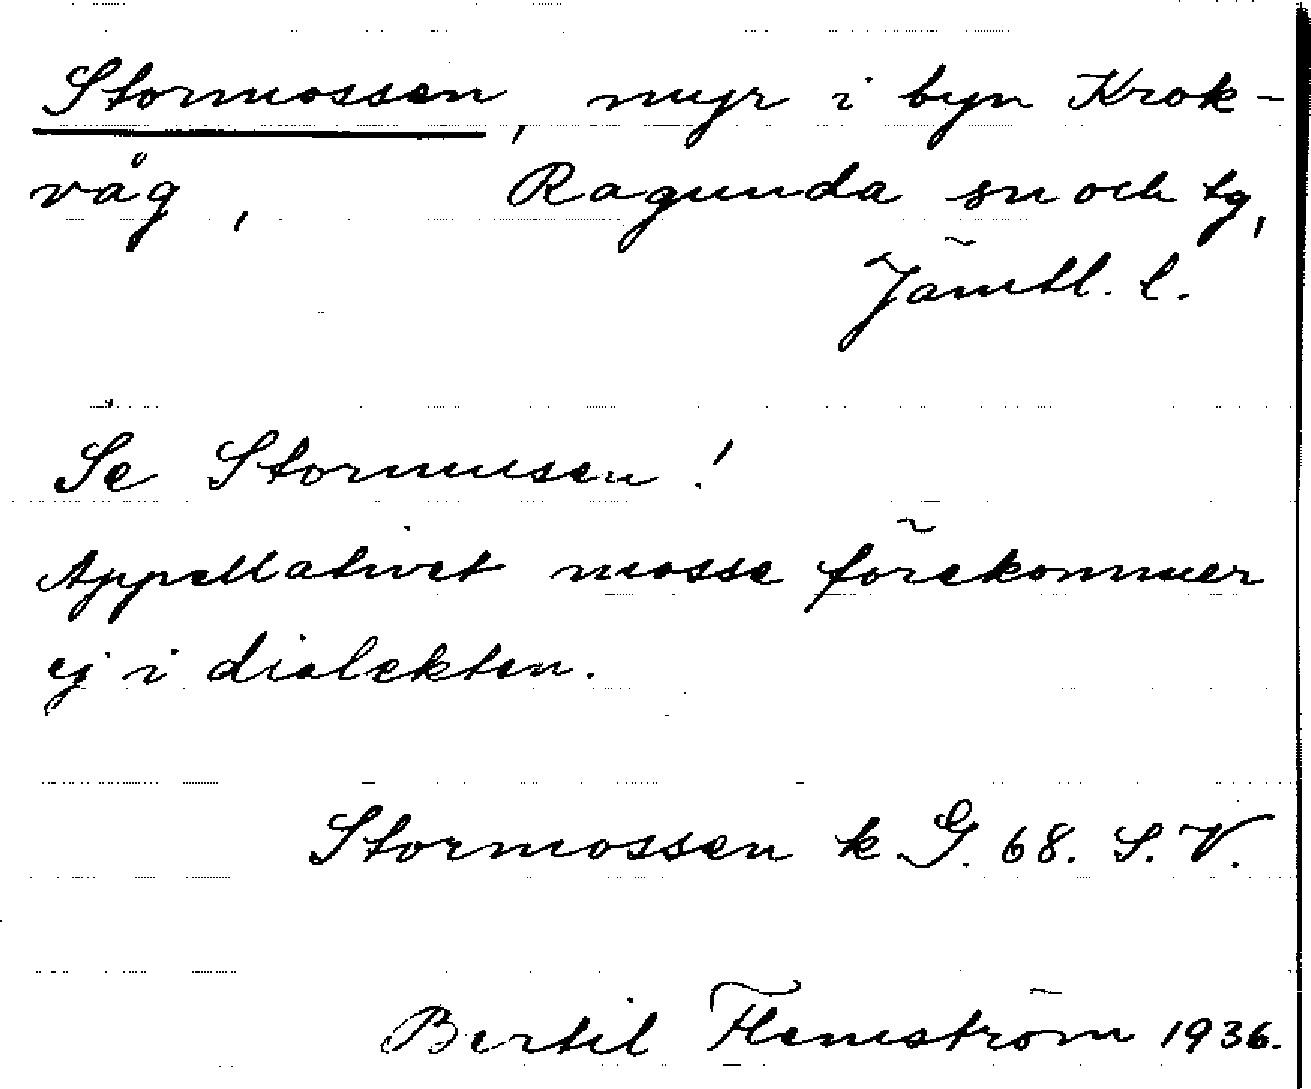 Stormossen, myr i byn Krok-
våg, Ragunda sn och tg,
Jämtl. l.
Se Stormusen!
Appellativet mosse förekommer
ej i dialekten.
Stormossen k. G. 68. S.V.
Bertil Flemström 1936.